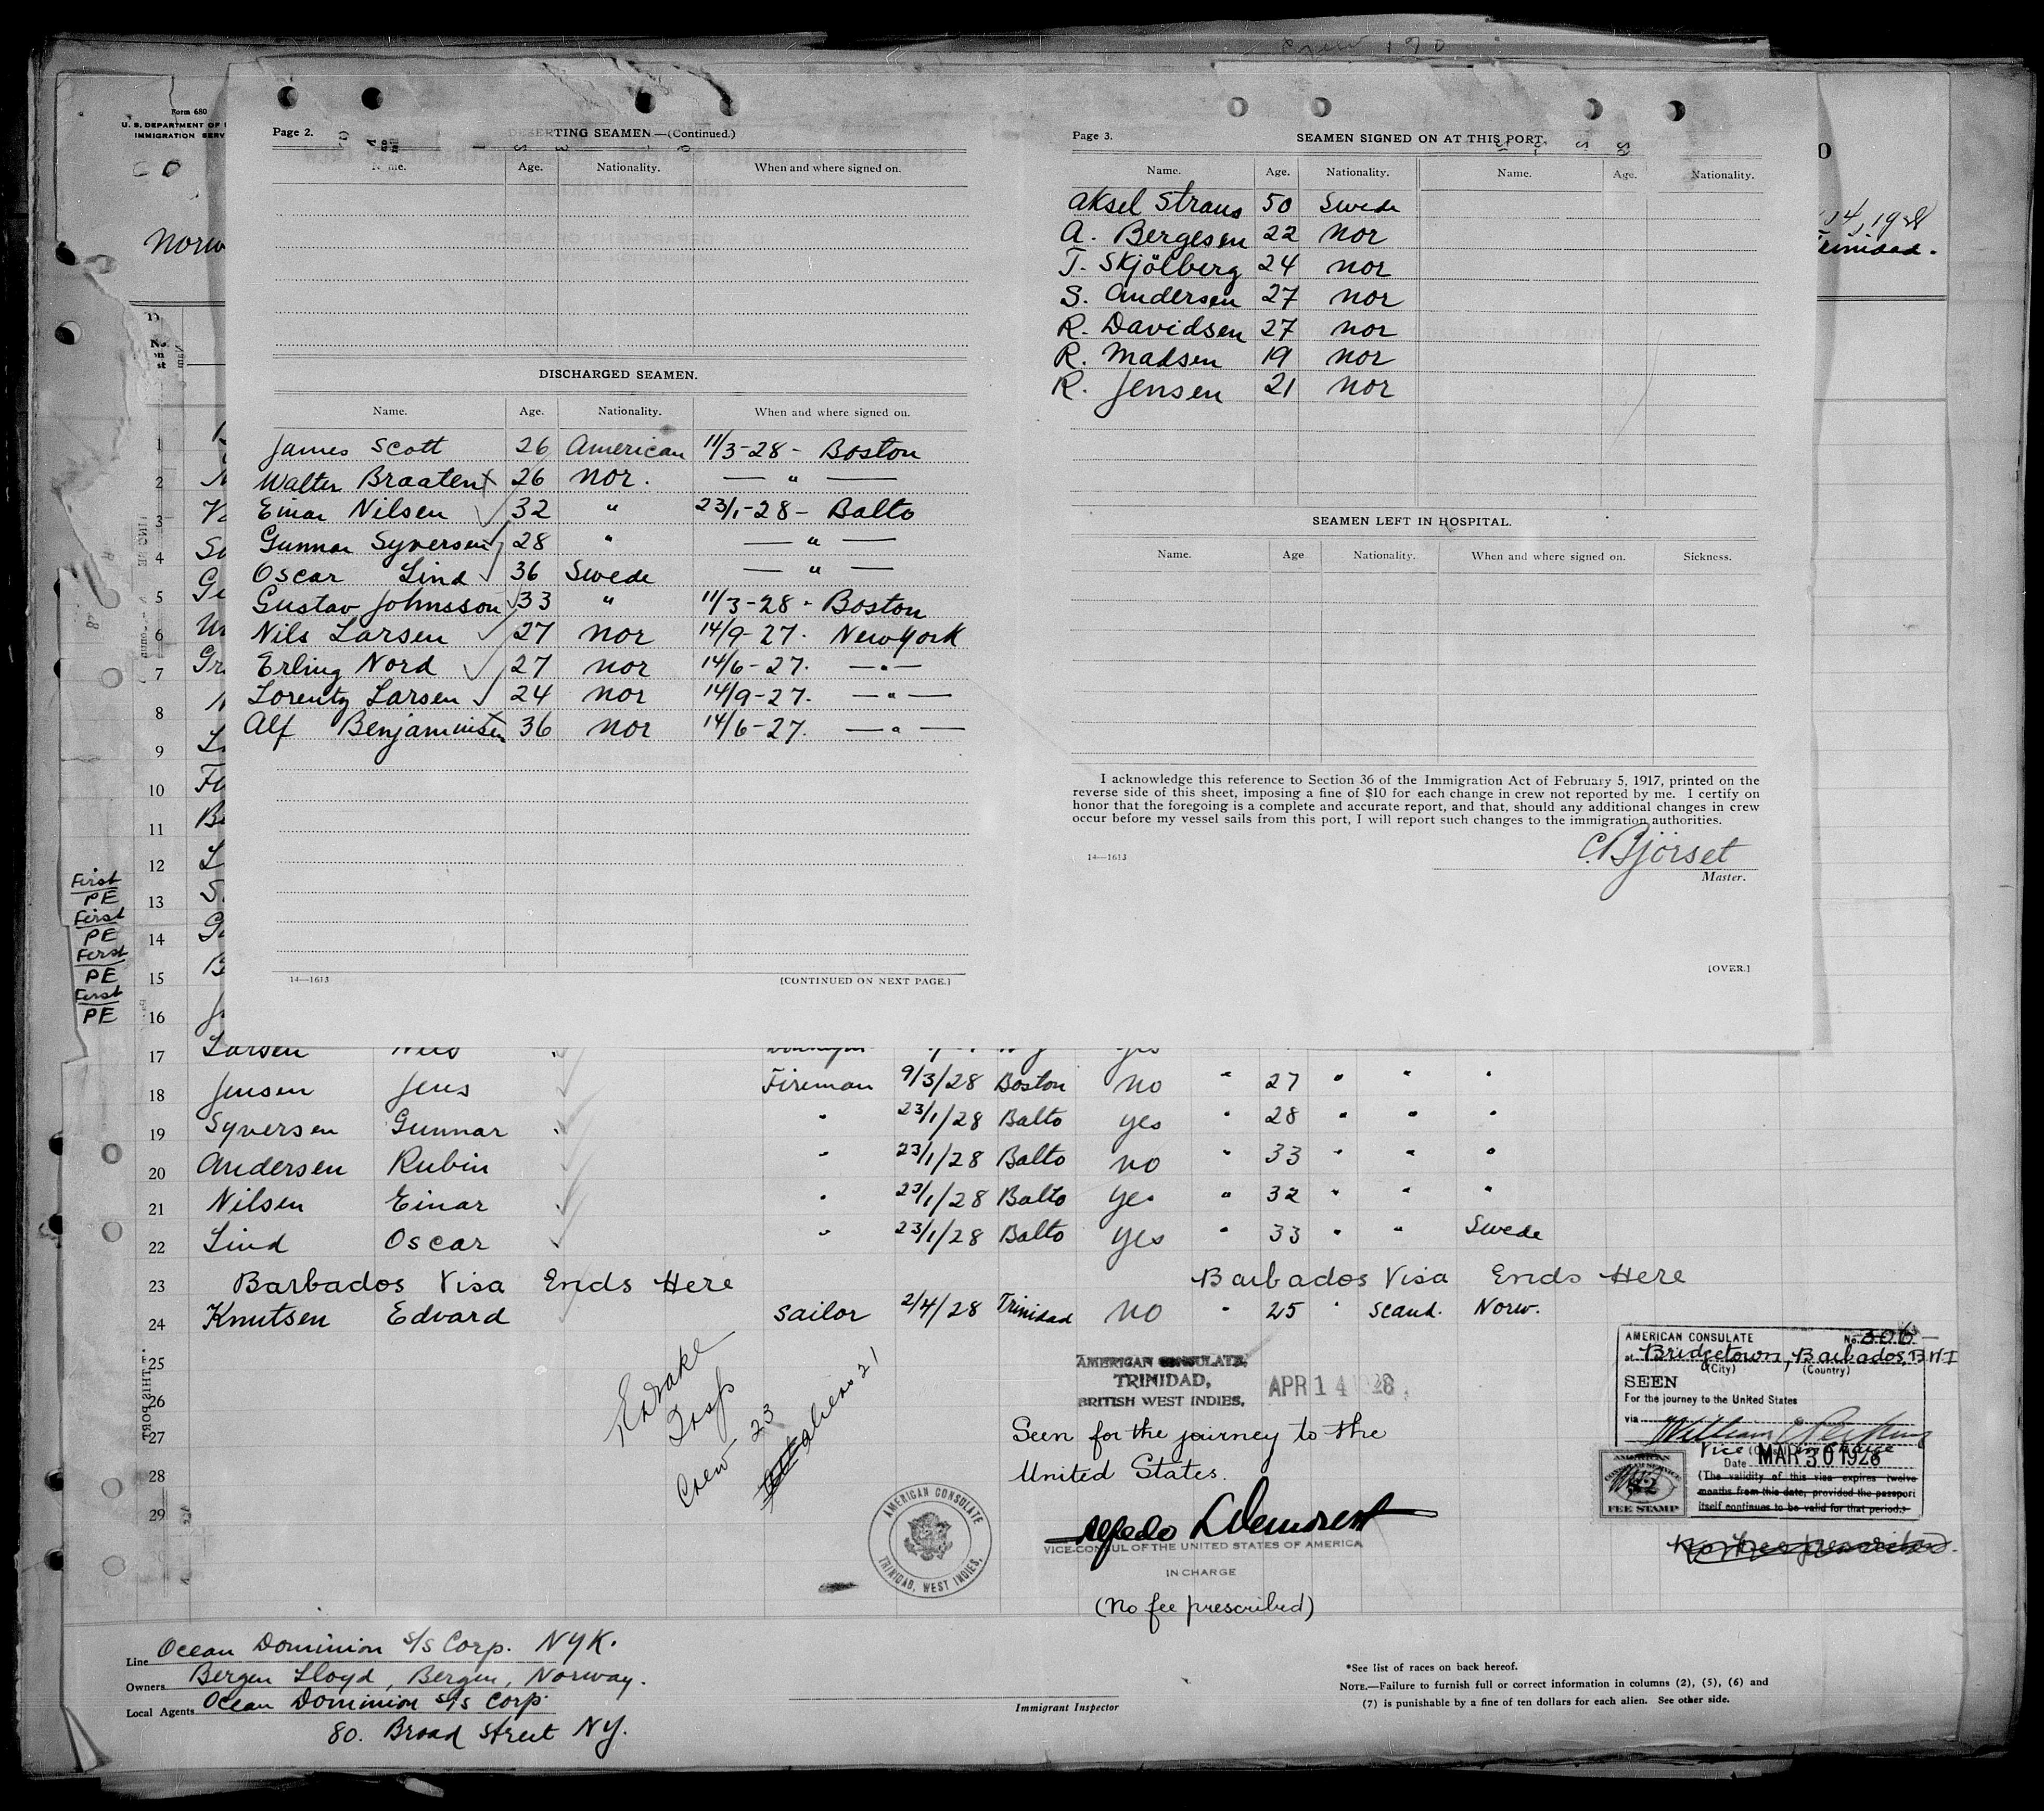 Crew 190
Form 680
U. S. DEPARTMENT OF
IMMIGRATION SERV
Norw
14, 1928
Trinidad.
Page 2.
DESERTING SEAMEN.—(Continued.)
Name. Age. Nationality. When and where signed on.
DISCHARGED SEAMEN.
Name. Age. Nationality. When and where signed on.
James Scott 26 American 11/3-28 - Boston
Walter Braaten x 26 Nor. — " —
Einar Nilsen ✓ 32 " 23/1-28 - Balto
Gunnar Syversen ✓ 28 " — " —
Oscar Lind ✓ 36 Swede — " —
Gustav Johnsson ✓ 33 " 11/3-28 - Boston
Nils Larsen ✓ 27 Nor 14/9-27. New York
Erling Nord ✓ 27 Nor 14/6-27. — " —
Lorentz Larsen ✓ 24 Nor 14/9-27. — " —
Alf Benjaminsen 36 Nor 14/6-27. — " —
14—1613
[CONTINUED ON NEXT PAGE.]
Page 3.
SEAMEN SIGNED ON AT THIS PORT.
Name. Age. Nationality. Name. Age. Nationality.
Aksel Straus 50 Swede
A. Bergesen 22 Nor
T. Skjölberg 24 Nor
S. Andersen 27 Nor
R. Davidsen 27 Nor
R. Madsen 19 Nor
R. Jensen 21 Nor
SEAMEN LEFT IN HOSPITAL.
Name. Age Nationality. When and where signed on. Sickness.
I acknowledge this reference to Section 36 of the Immigration Act of February 5, 1917, printed on the
reverse side of this sheet, imposing a fine of $10 for each change in crew not reported by me. I certify on
honor that the foregoing is a complete and accurate report, and that, should any additional changes in crew
occur before my vessel sails from this port, I will report such changes to the immigration authorities.
C. Björset
Master.
14—1613
[OVER.]
1
2
3
4
5
6
7
8
9
10
11
12
First
PE 13
First
PE 14
First
PE 15
First
PE 16
17 Larsen Nils
18 Jensen Jens ✓ Fireman 9/3/28 Boston No " 27 " " "
19 Syversen Gunnar ✓ " 23/1/28 Balto yes " 28 " " "
20 Andersen Rubin ✓ " 23/1/28 Balto no " 33 " " "
21 Nilsen Einar ✓ " 23/1/28 Balto yes " 32 " " "
22 Lind Oscar ✓ " 23/1/28 Balto yes " 33 " " Swede
23 Barbados Visa Ends Here Barbados Visa Ends Here
24 Knutsen Edvard ✓ Sailor 2/4/28 Trinidad NO " 25 " Scand. Norw.
25
26
27
28
29
Drake
Insp
Crew 23
aliens 21
AMERICAN CONSULATE,
TRINIDAD,
BRITISH WEST INDIES.
APR 14 1928
Seen for the journey to the
United States.
VICE-CONSUL OF THE UNITED STATES OF AMERICA
IN CHARGE
(No fee prescribed)
AMERICAN CONSULATE
TRINIDAD, WEST INDIES.
AMERICAN CONSULATE No. 306
at Bridgetown, Barbados, B.W.I
(City) (Country)
SEEN
For the journey to the United States
via
William
Vice
Date MAR 30 1928
(The validity of this visa expires twelve
months from this date, provided the passport
itself continues to be valid for that period.)
AMERICAN
CONSULAR SERVICE
$2
FEE STAMP
No fee prescribed.
Line Ocean Dominion S/S Corp. NYK.
Owners Bergen Lloyd, Bergen, Norway.
Local Agents Ocean Dominion S/S Corp.
80. Broad Street NY.
Immigrant Inspector
*See list of races on back hereof.
NOTE.—Failure to furnish full or correct information in columns (2), (5), (6) and
(7) is punishable by a fine of ten dollars for each alien. See other side.